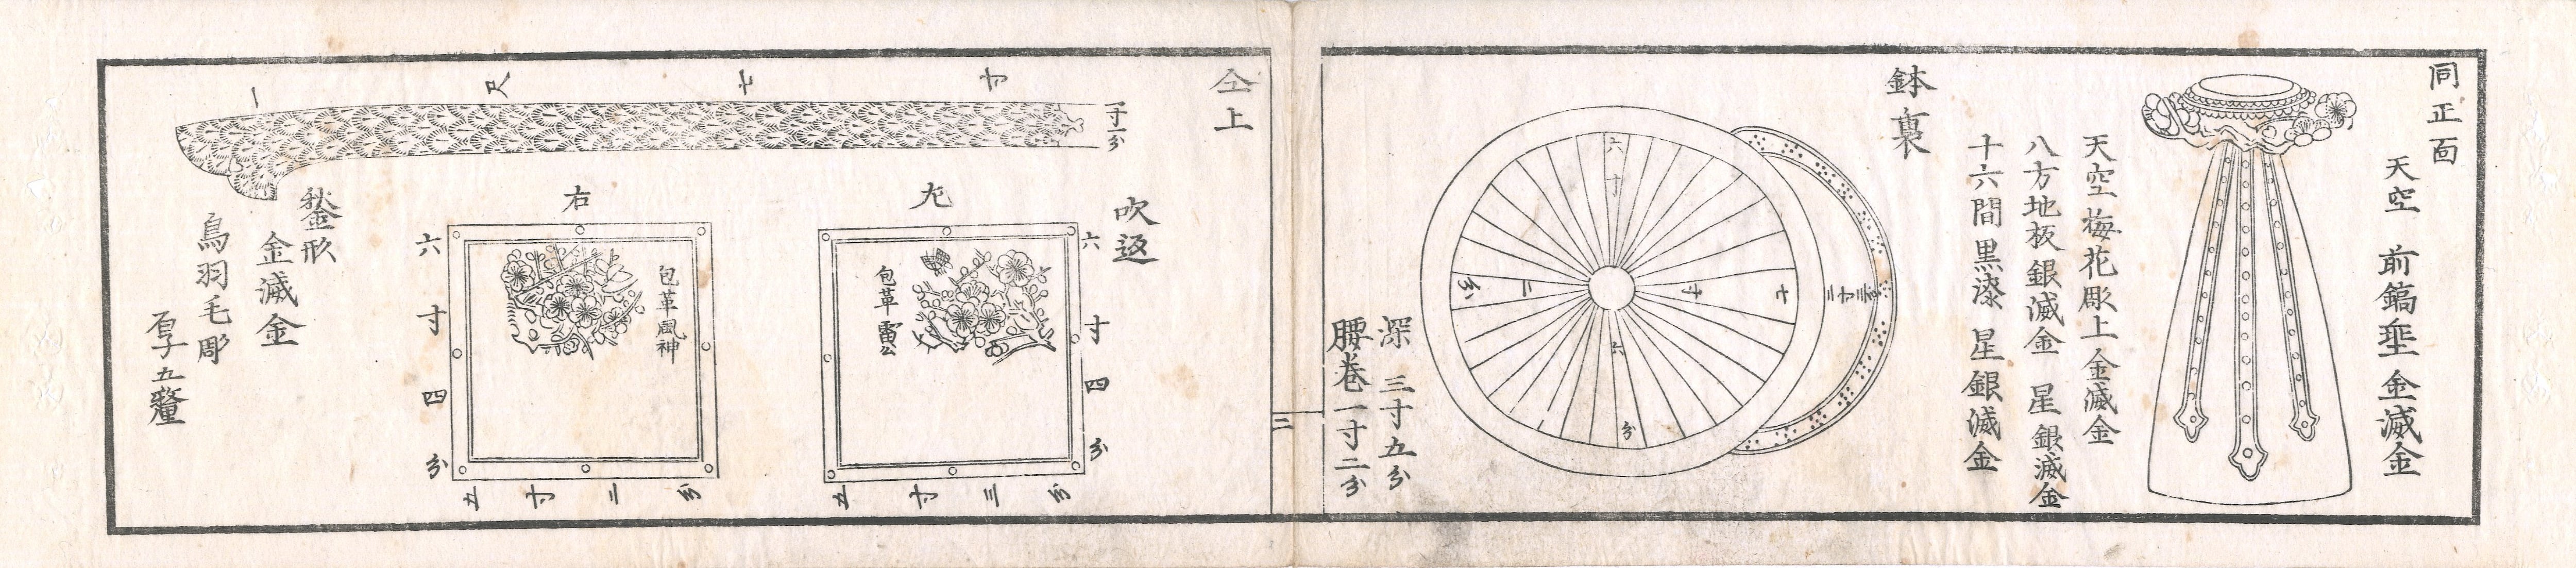 同正面
天空 前鎬垂 金滅金
天空 梅花彫上金滅金
八方地板銀滅金 星 銀滅金
十六間黒漆 星 銀滅金
鉢裏
六寸六分
七寸二分
深 三寸五分
腰巻一寸二分
二
仝上
一尺七寸
一寸一分
吹返
左
六寸四分
包革雷公
五寸三分
右
包革風神
六寸四分
五寸三分
鍬形
金滅金
鳥羽毛彫
厚五釐